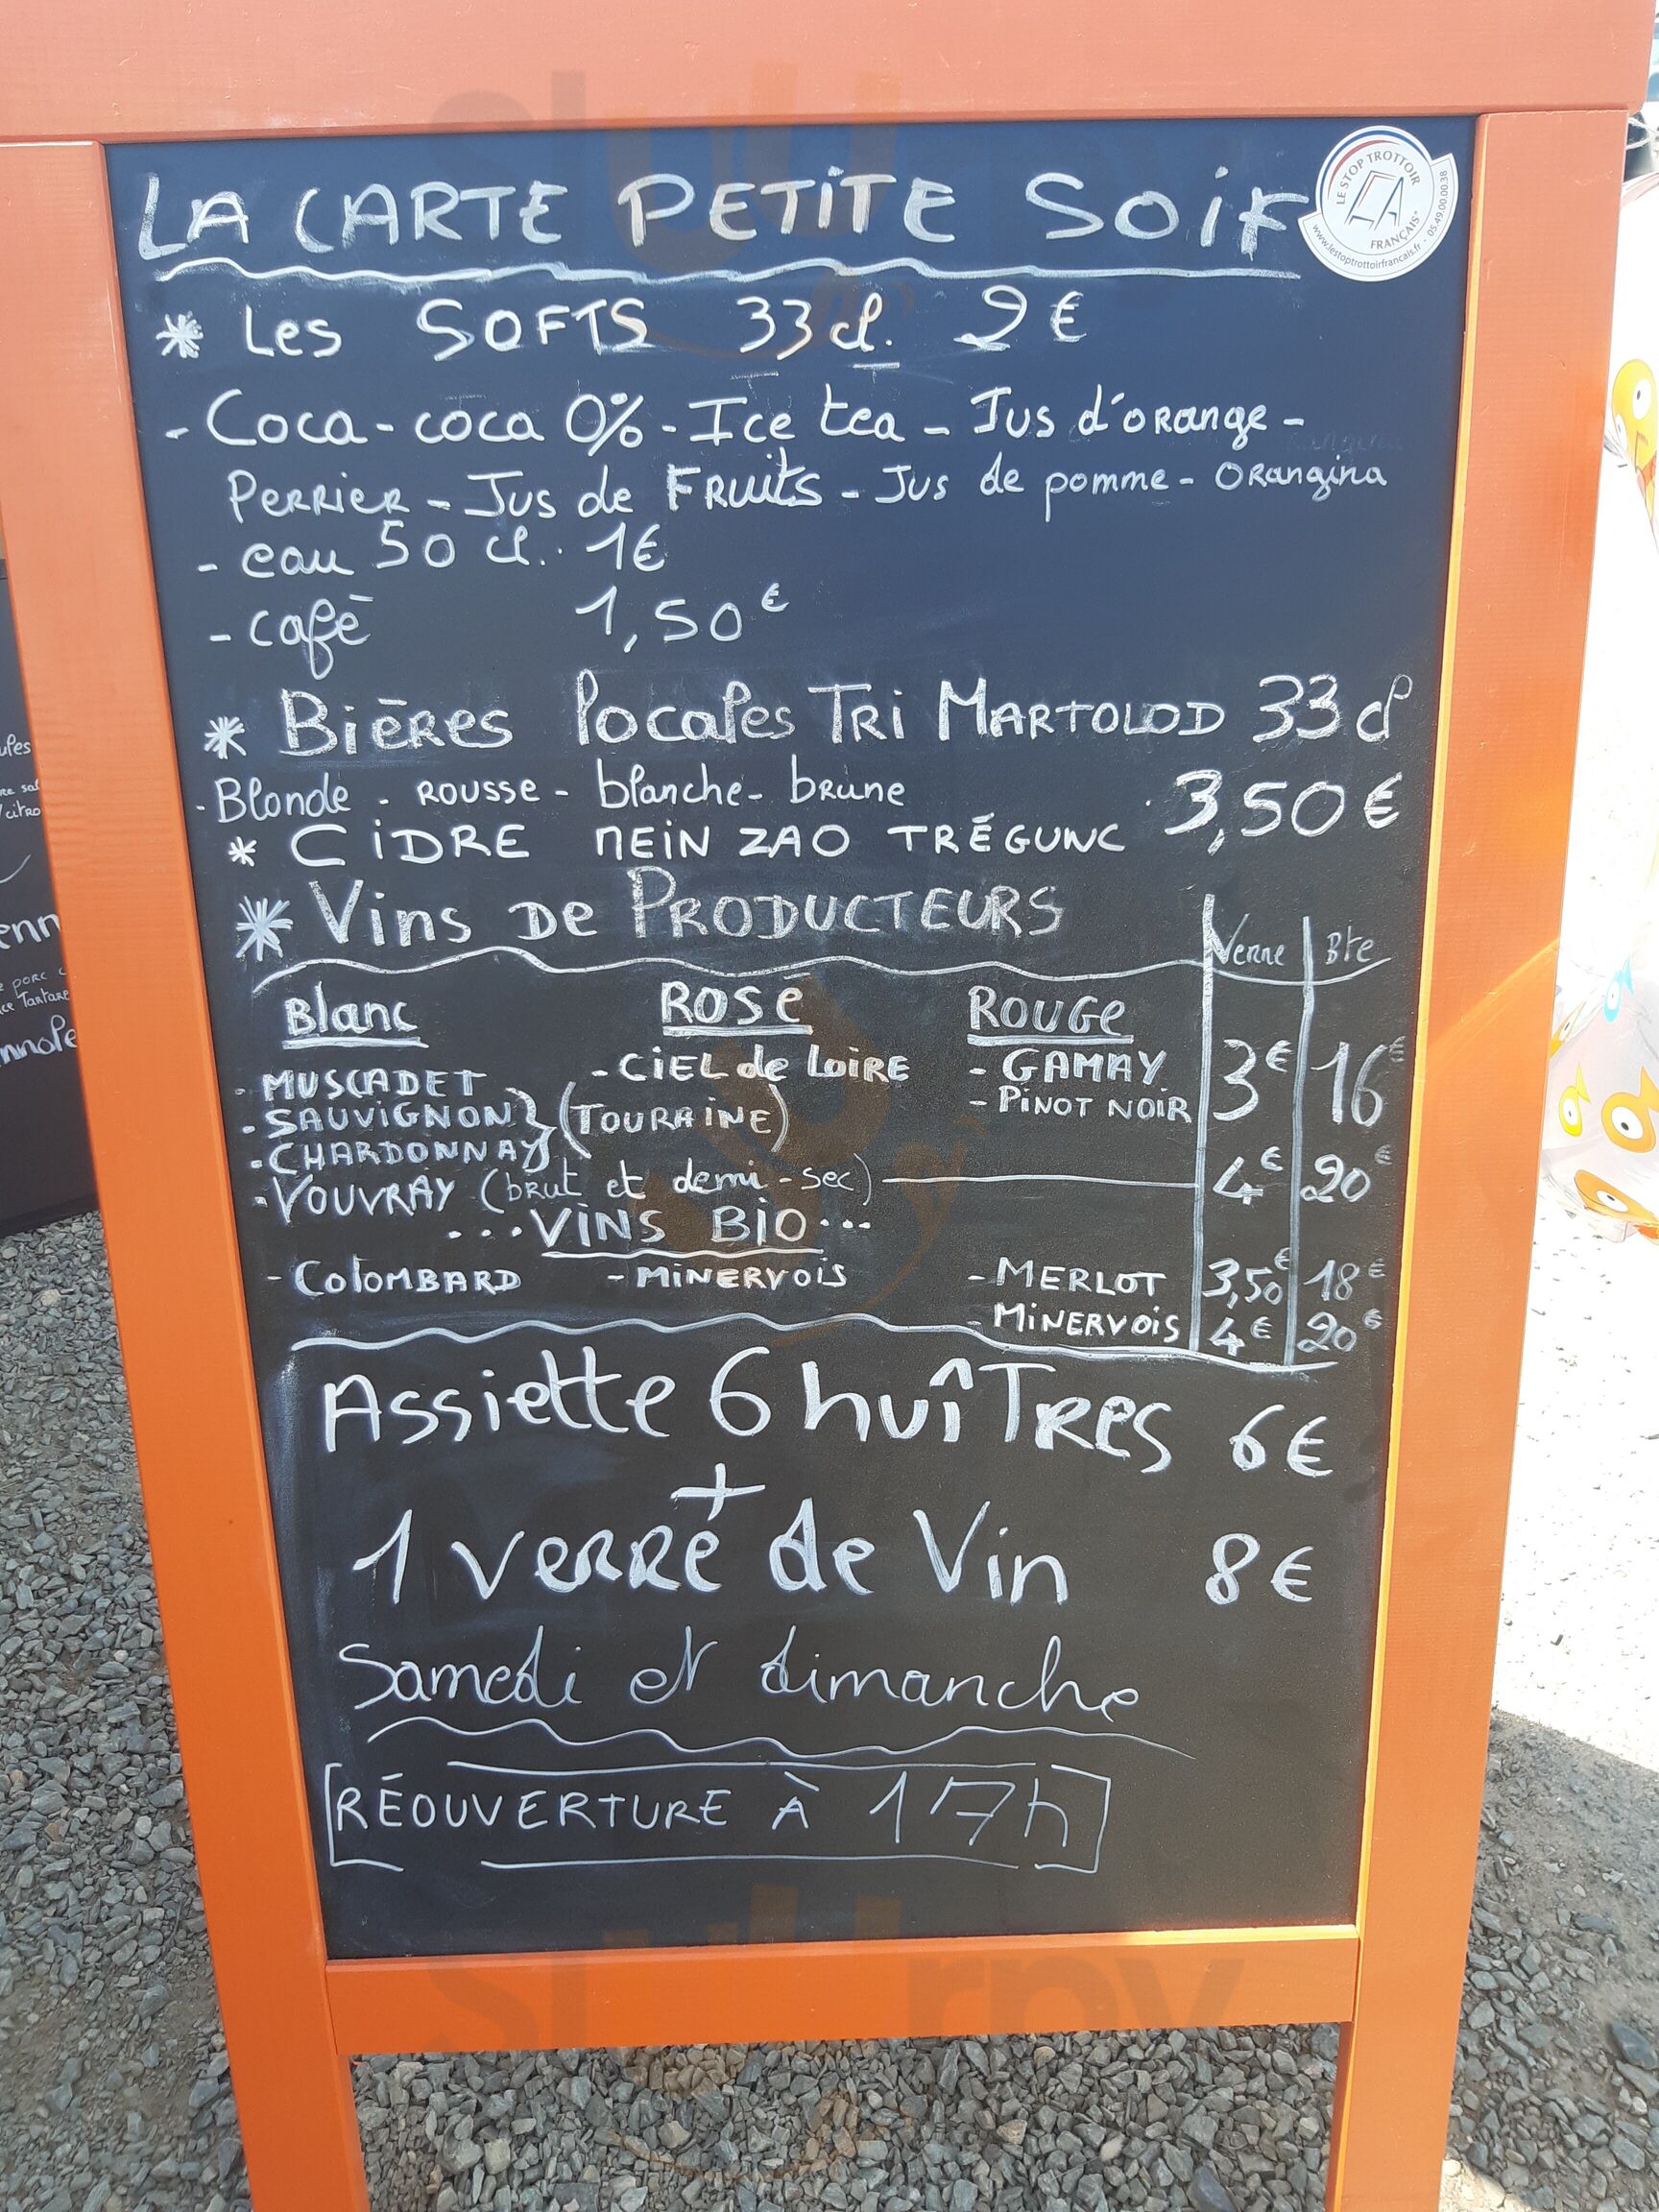 LA CARTE PETITE SOIF
LE STOP TROTTOIR
FRANÇAIS
www.lestoptrottoirfrancais.fr - 05.49.00.00.38
* Les SOFTS 33 cl. 2€
- Coca - coca 0% - Ice tea - Jus d'orange -
Perrier - Jus de Fruits - Jus de pomme - Orangina
- eau 50 cl. 1€
- café 1,50€
* Bières locales TRI MARTOLOD 33 cl
- Blonde - rousse - blanche - brune 3,50€
* CIDRE NEIN ZAO TRÉGUNC
* Vins de PRODUCTEURS Verre Bte
Blanc ROSÉ ROUGE
- MUSCADET - CIEL de LOIRE - GAMAY 3€ 16€
- SAUVIGNON } (TOURAINE) - PINOT NOIR
- CHARDONNAY
- VOUVRAY (brut et demi-sec) 4€ 20€
...VINS BIO...
- COLOMBARD - MINERVOIS - MERLOT 3,50€ 18€
- MINERVOIS 4€ 20€
Assiette 6 huîtres 6€
+
1 verre de Vin 8€
Samedi et dimanche
RÉOUVERTURE À 17h